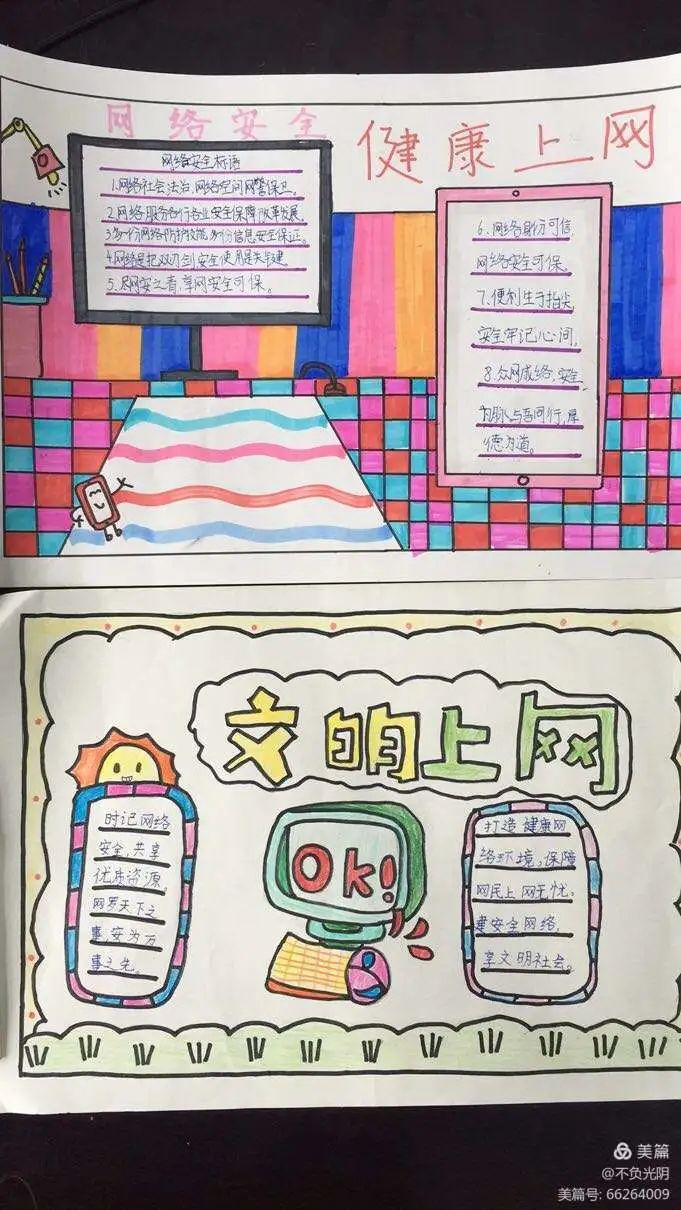 网络安全
健康上网
网络安全标语
1.网络社会法治,网络空间网警保卫。
2.网络服务各行各业安全保障改革发展。
3.身份网络防护技能,身份信息安全保证。
4.网络是把双刃剑,安全使用是关键。
5.足网安之青,享网安全可保。
6.网络身份可信
网络安全可保。
7.便利生于指尖
安全牢记心间,
8.众网成络,安全
为脉与吾同行,厚
德为道。
文明上网
时记网络
安全,共享
优质资源。
网罗天下之
事,安为万
事之先。
OK!
打造健康网
络环境,保障
网民上网无忧。
建安全网络,
享文明社会。
美篇
@不负光阴
美篇号: 66264009